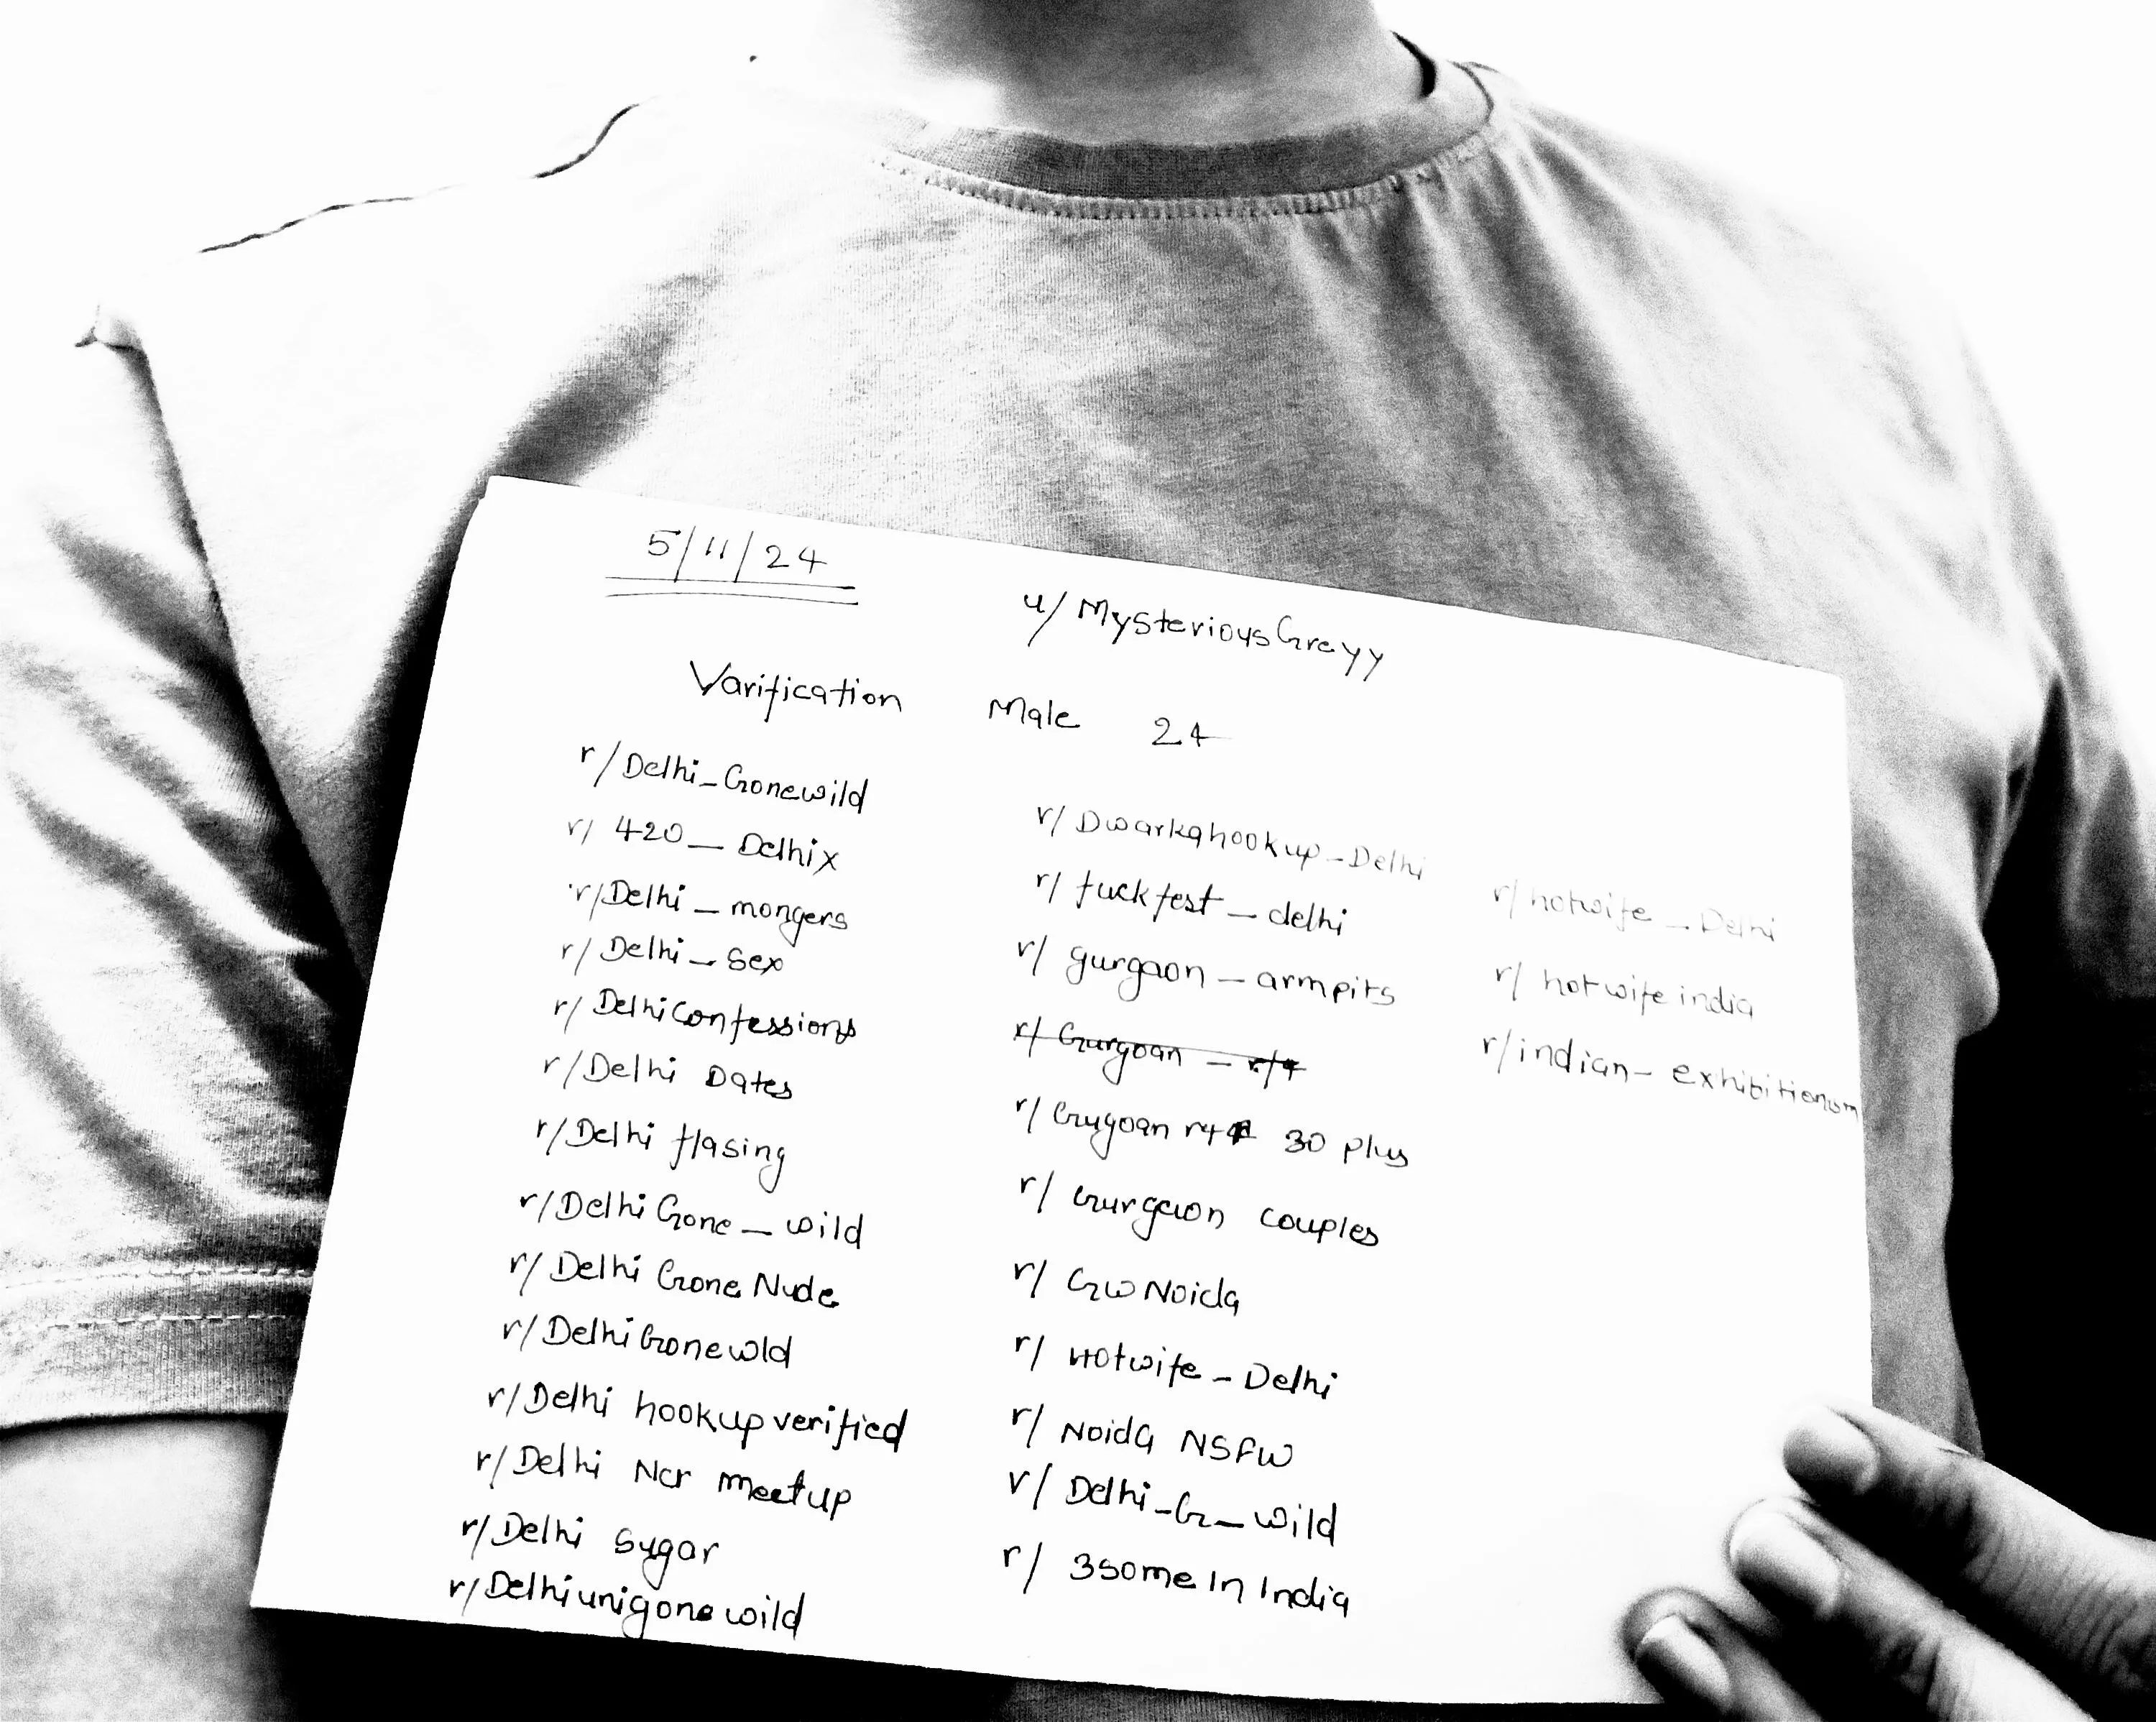 5/11/24
u/MysteriousGreyy
Varification Male 24
r/Delhi_Gonewild
r/420_Delhix
r/Delhi_mongers
r/Delhi_sex
r/Delhiconfessions
r/Delhi Dates
r/Delhi flasing
r/Delhi Gone_wild
r/Delhi Gone Nude
r/DelhiGonewld
r/Delhi hookupverified
r/Delhi Ncr meetup
r/Delhi sugar
r/Delhiunigonewild
r/Dwarkahookup_Delhi
r/fuckfest_delhi
r/gurgaon_armpits
r/Gurgoan_r/4
r/Grugoan r4r 30 plus
r/Gurgaon couples
r/GWNoida
r/Hotwife_Delhi
r/Noida NSFW
r/Delhi_G_wild
r/3someInIndia
r/hotwife_Delhi
r/hotwifeindia
r/indian_exhibitionsm